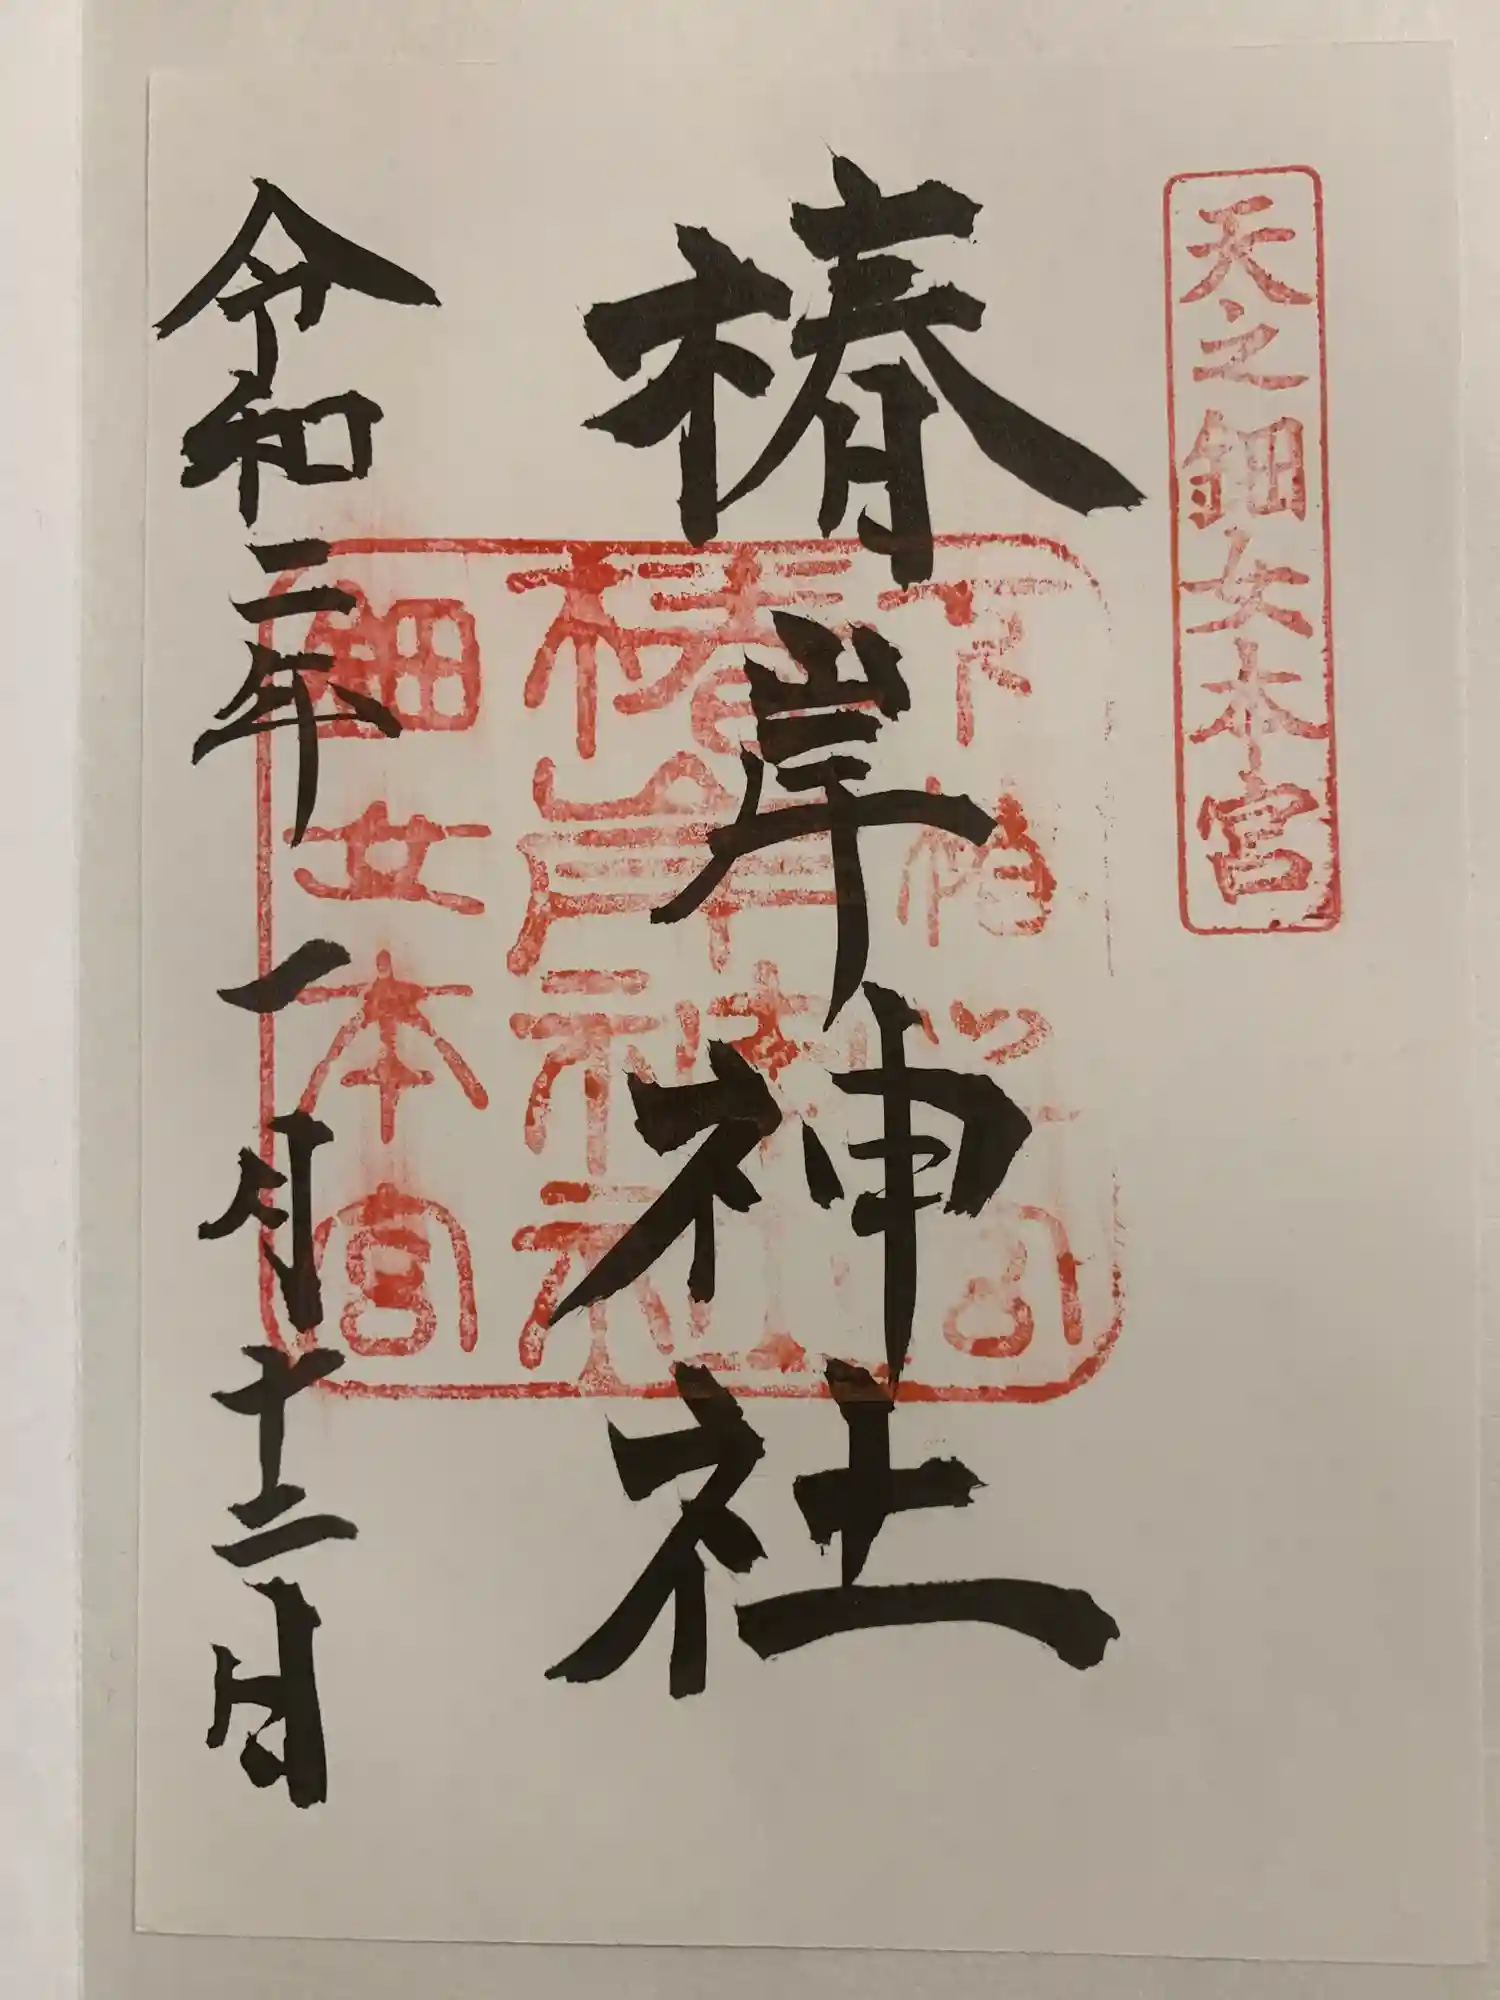 天之鈿女本宮
椿岸神社
椿岸神社
鈿女本宮
令和二年一月十二日